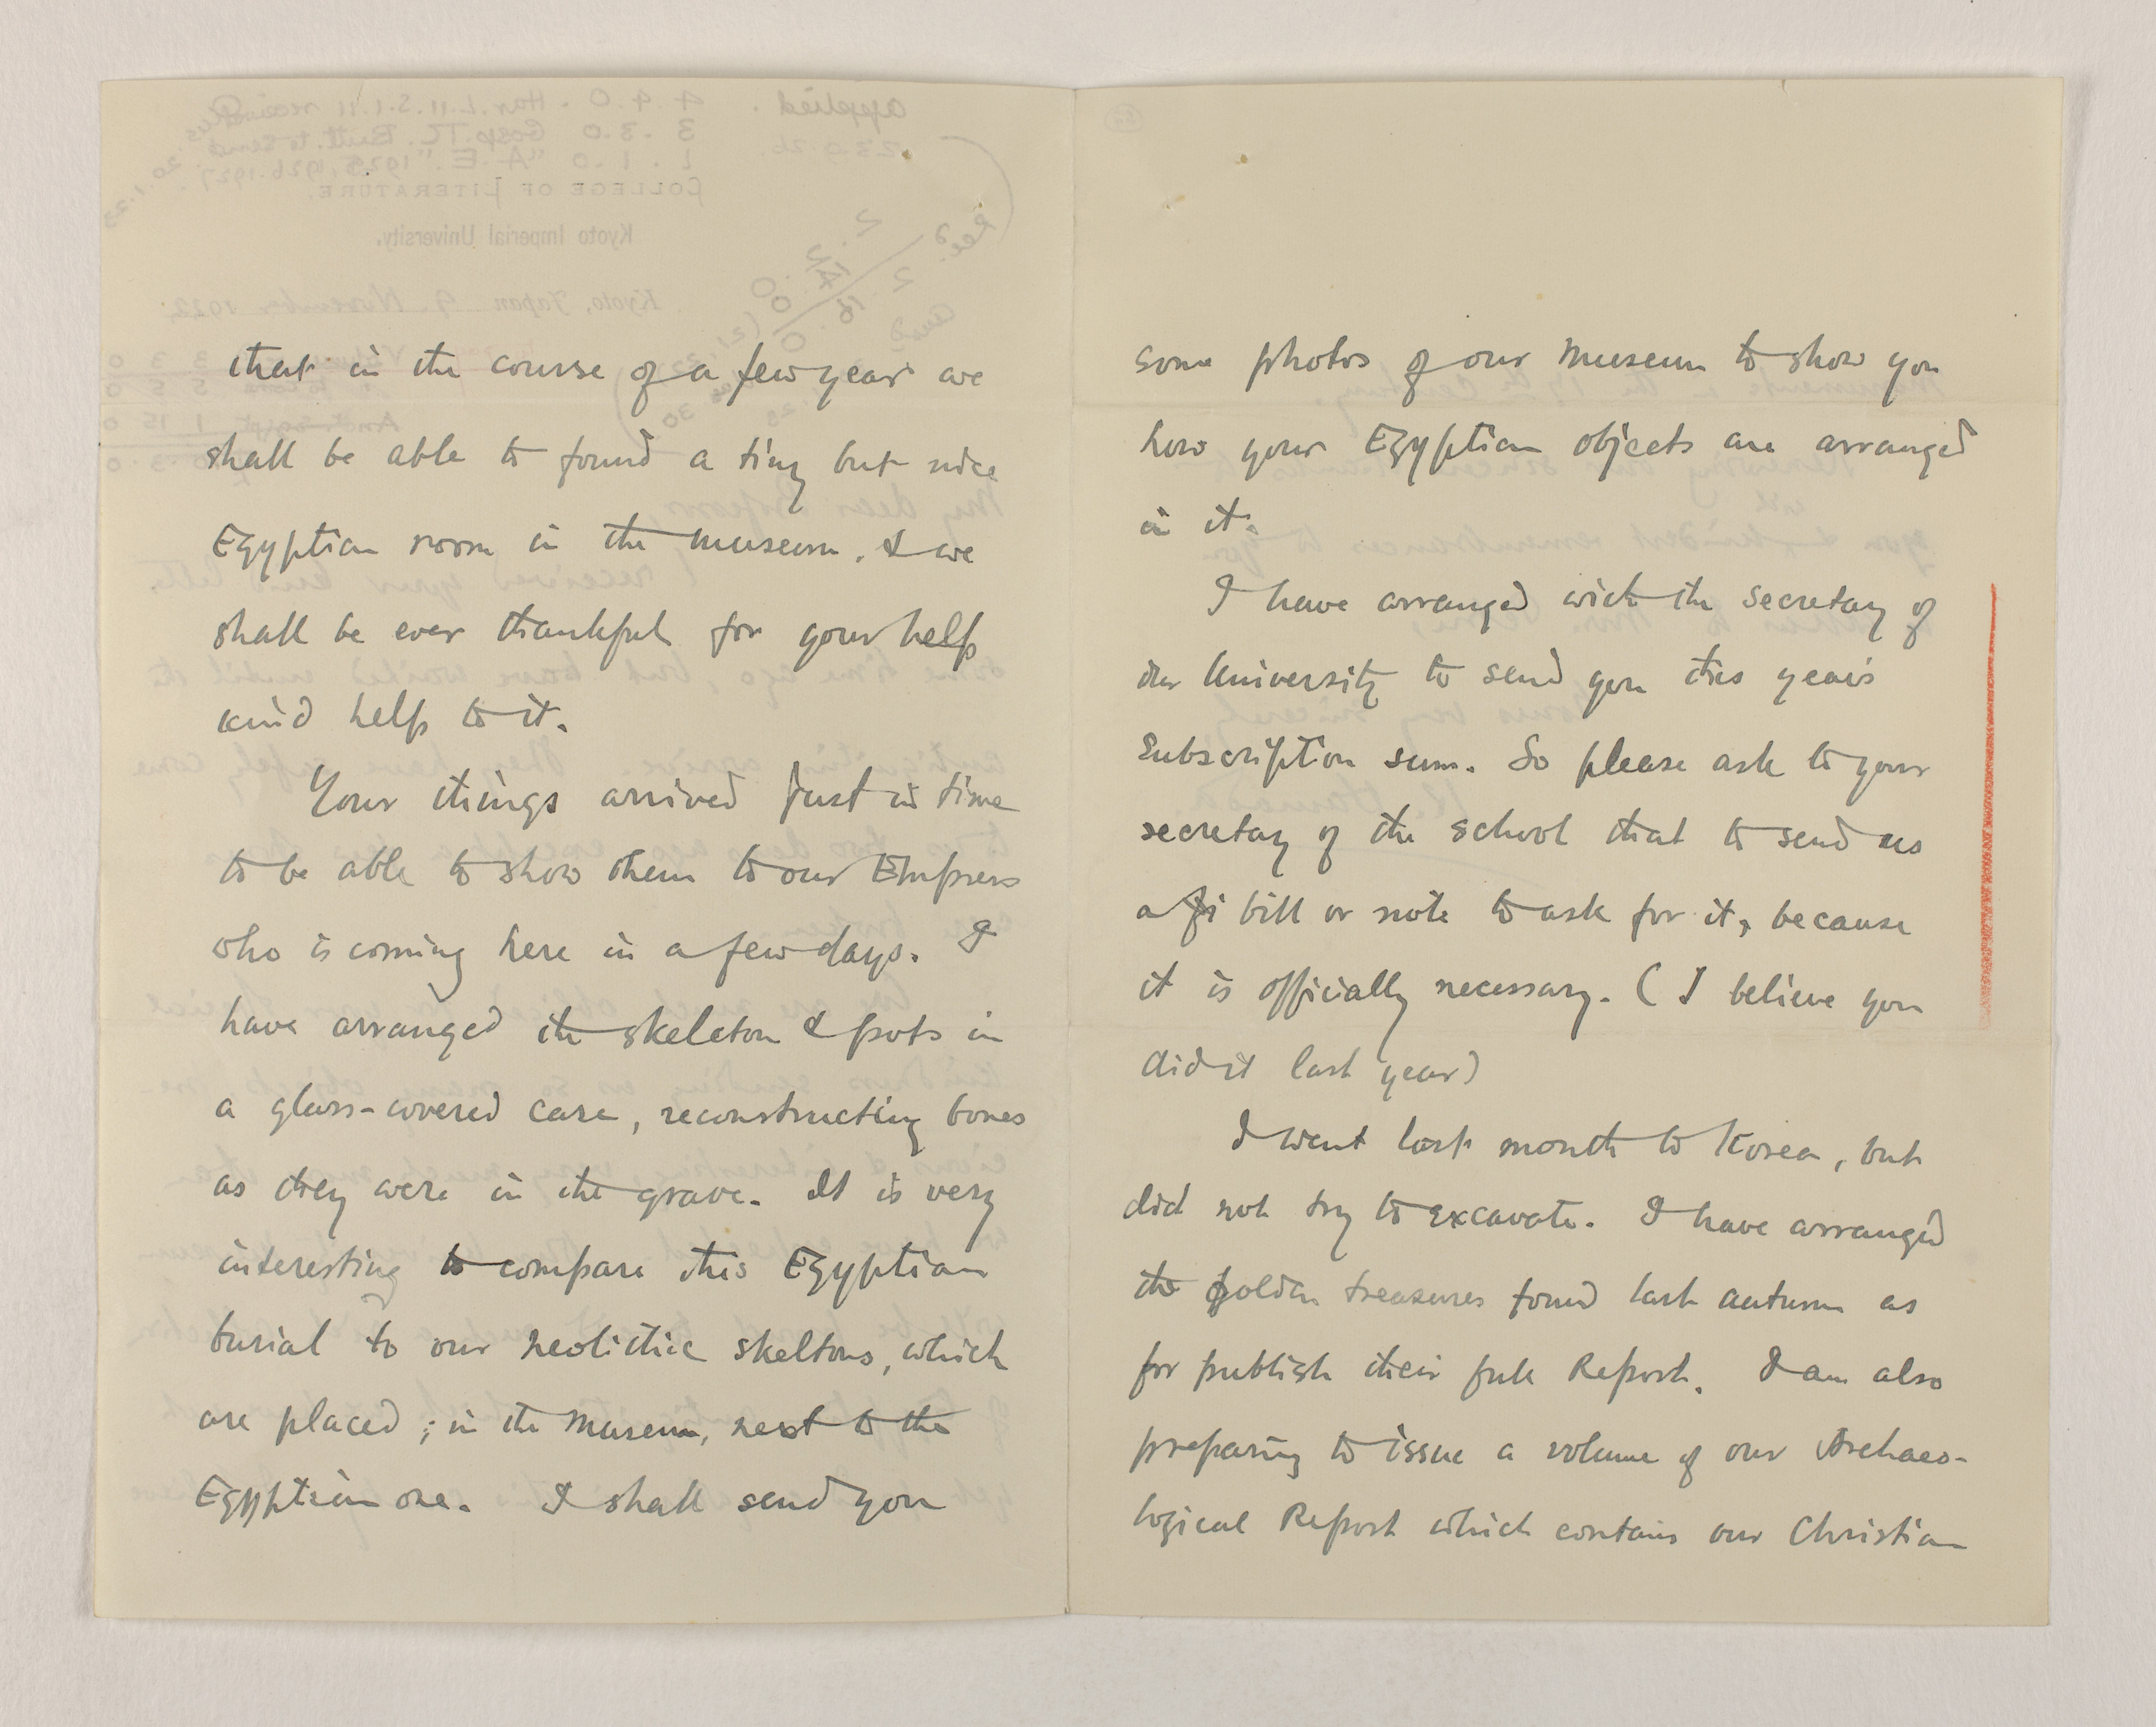 that in the course of a few year we
shall be able to found a tiny but nice
Egyptian room in the museum. & we
shall be ever thankful for your help
kind help to it.
Your things arrived just in time
to be able to show them to our Empress
who is coming here in a few days. I
have arranged the skeleton & pots in
a glass-covered case, reconstructing bones
as they were in the grave. It is very
interesting to compare this Egyptian
burial to our neolithic skeltons, which
are placed; in the Museum, next to the
Egyptian one. I shall send you
some photos of our Museum to show you
how your Egyptian objects are arranged
in it.
I have arranged with the secretary of
our University to send you this year's
Subscription sum. So please ask to your
secretary of the school that to send us
a bill or note to ask for it, because
it is officially necessary. (I believe you
did it last year)
I went last month to Korea, but
did not try to excavate. I have arranged
the golden treasures found last autumn as
for publish their full Report. I am also
preparing to issue a volume of our Archaeo-
logical Report which contains our Christian
COLLEGE OF LITERATURE.
Kyoto Imperial University.
Kyoto, Japan 9. November 1922
My dear Professor,